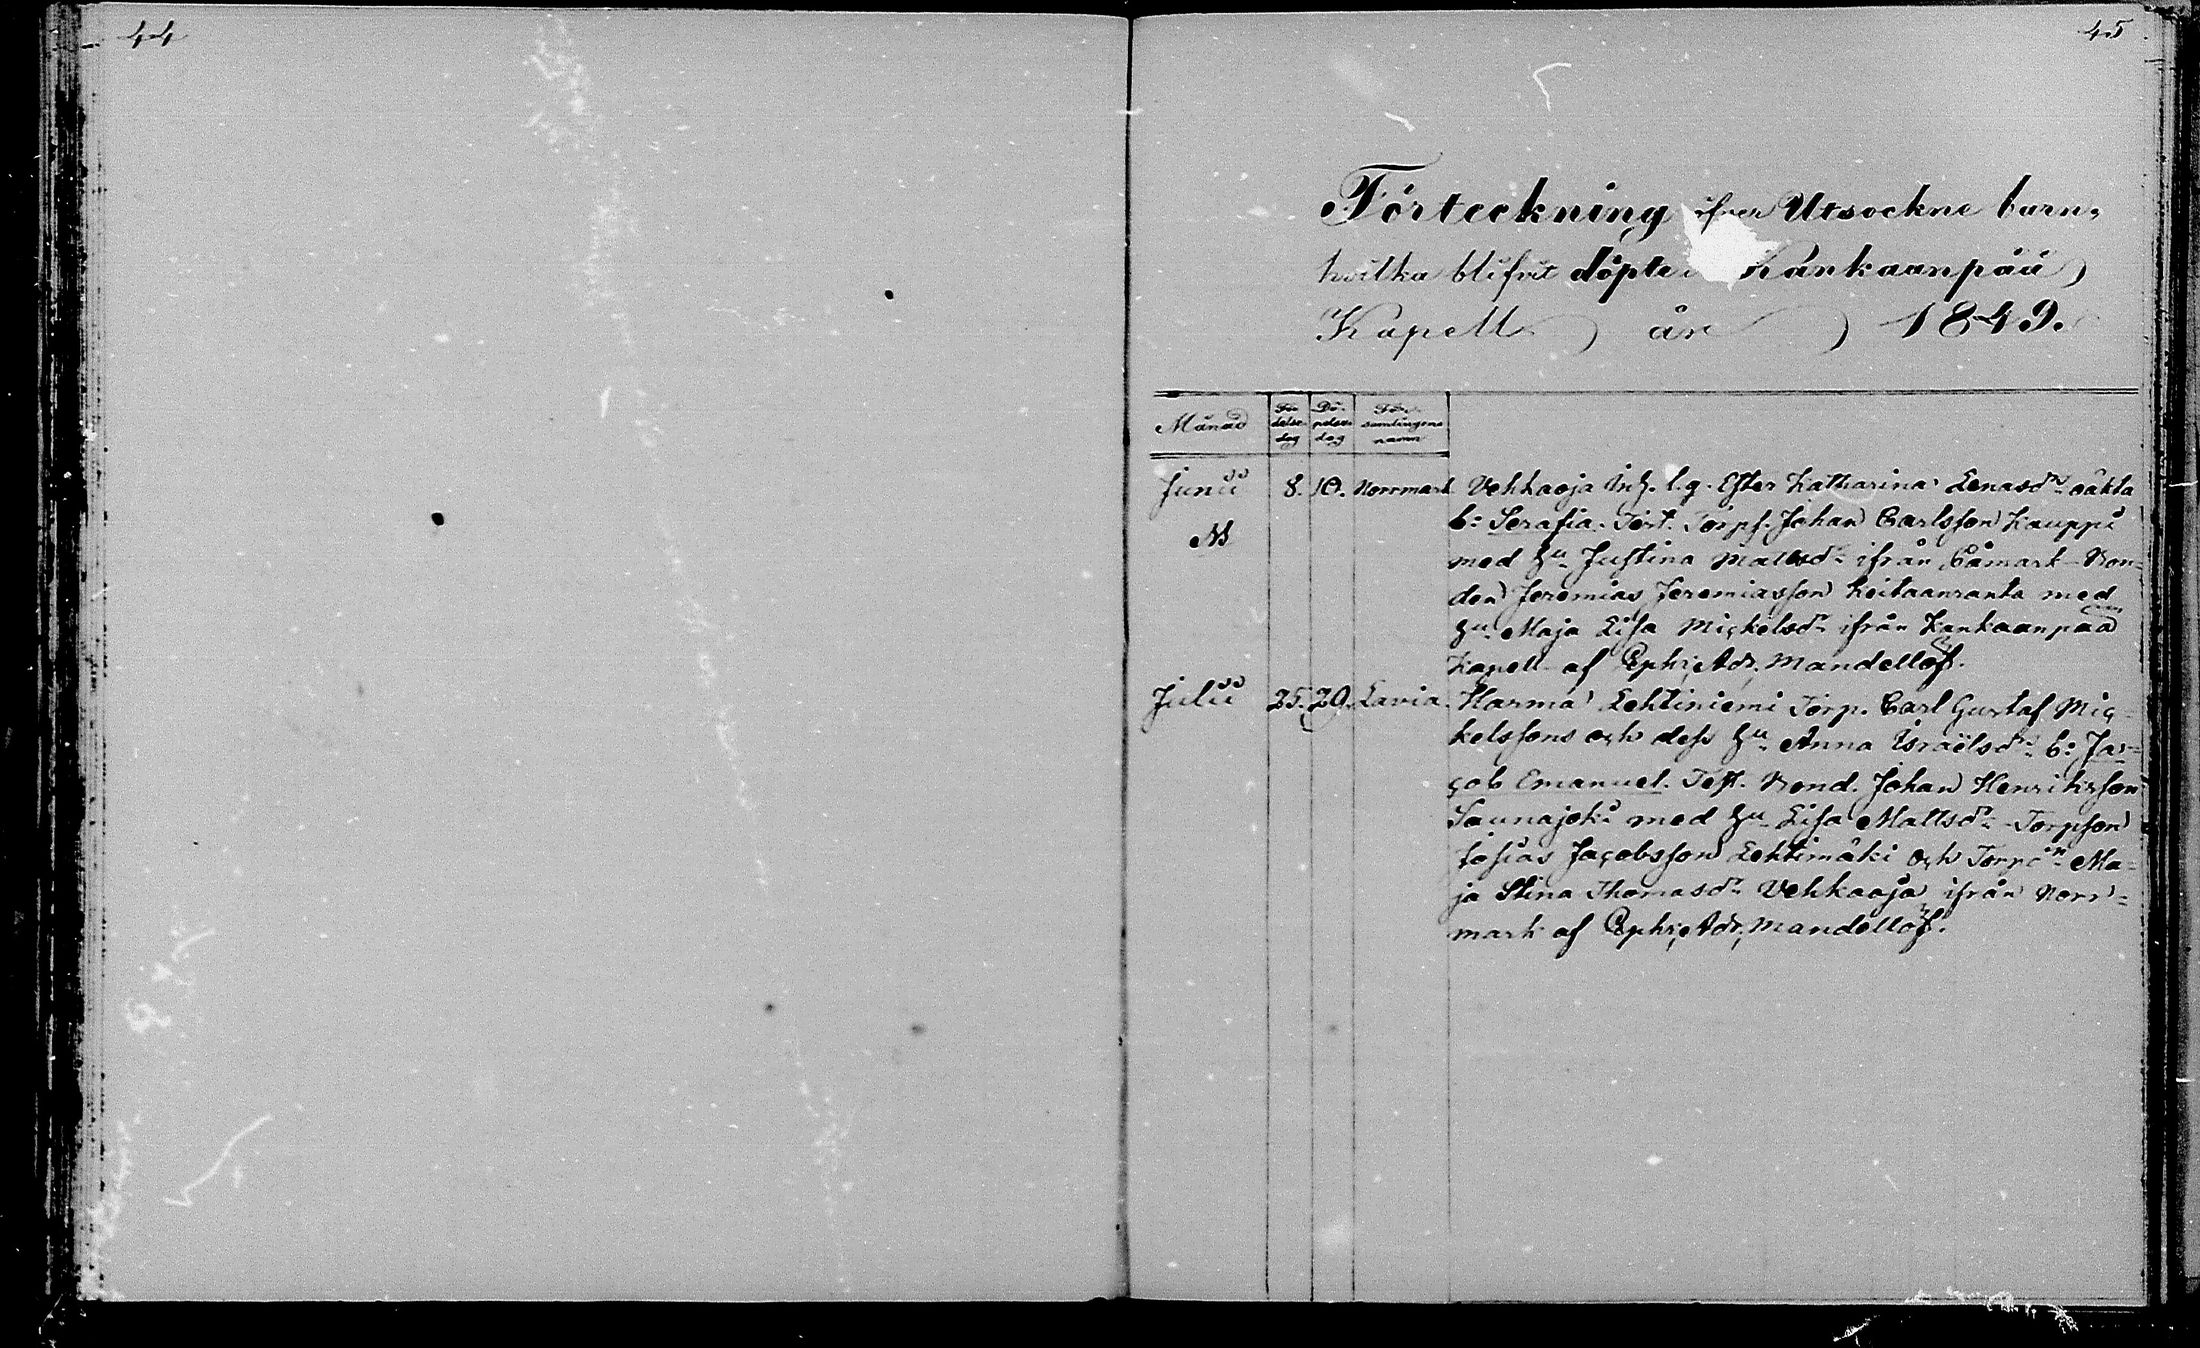 44
45
Förteckning öfver Utsockne barn,
hvilka blifvit döpte Kankaanpää
Kapell år 1849.
Månad
Fö-
delse-
dag
Dö-
pelse-
dag
För-
samlingens
namn
Junii 8. 10. Norrmark Vehkaoja Inh. l.g. Ester Katharina Lenasdr oäkta
b: Serafia. Test. Torpf. Johan Carlsson Kauppi
N
med hu Justina Mattsdr ifrån Påmark Bon-
den Jeremias Jeremiasson Keitaanranta med
hu Maja Lisa Mickelsdr ifrån Kankaanpää
Kapell af Ephi, Adr, Mandellöf.
Julii 25. 29. Lavia. Harma Lehtiniemi Torp. Carl Gustaf Mic-
kelssons och dess hu Anna Israëlsdr b: Ja-
cob Emanuel. Test. Bond. Johan Henriksson
Saunajoki med hu Lisa Mattsdr Torpson
Josias Jacobsson Lehtimäki och Torp Ma-
ja Stina Thomasdr Vehkaoja ifrån Norr-
mark af Ephi, Adr, Mandellöf.